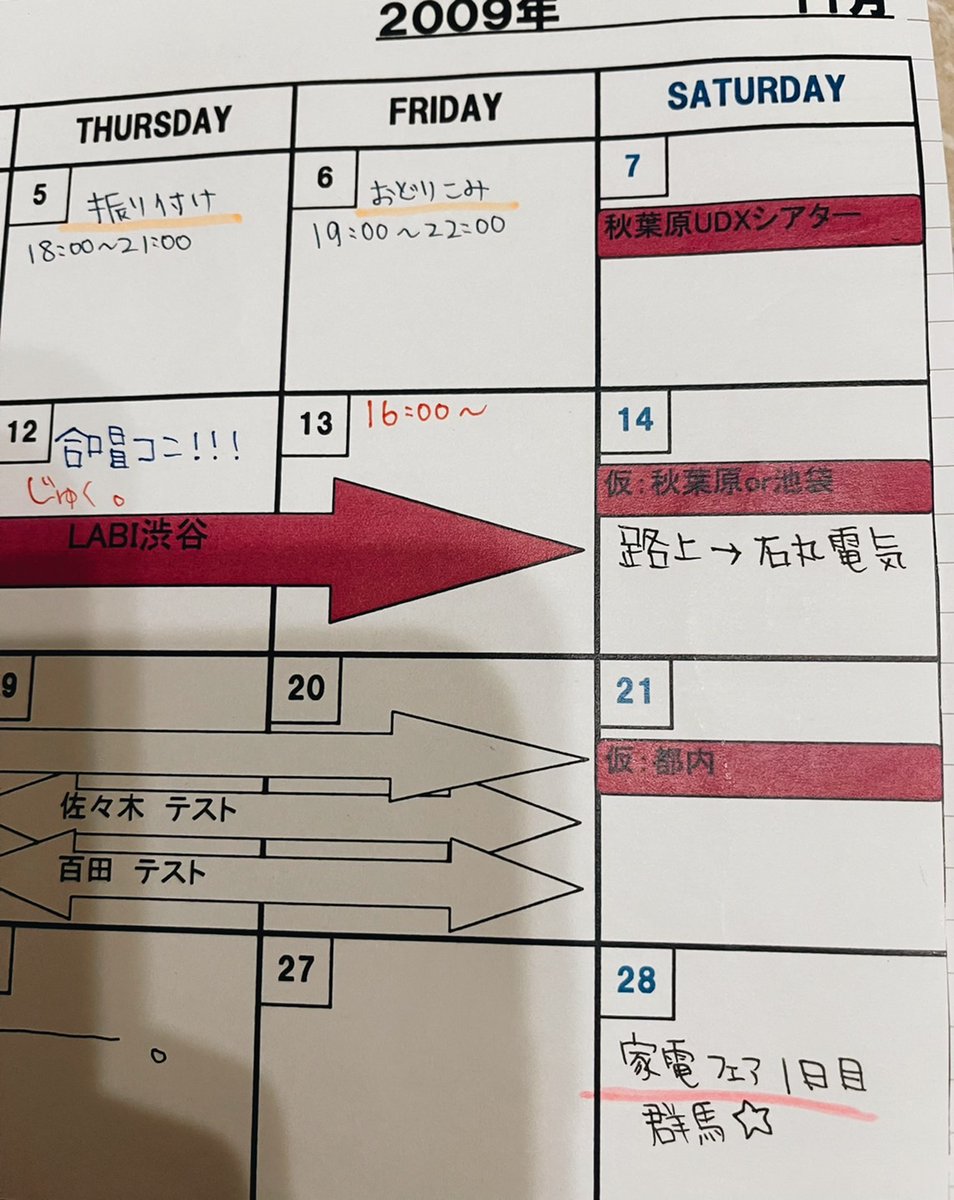 2009年 11月
THURSDAY FRIDAY SATURDAY
5 振り付け
18:00～21:00
6 おどりこみ
19:00～22:00
7
秋葉原UDXシアター
12 合唱コン!!!
じゅく。
LABI渋谷
13 16:00～
14
仮:秋葉原or池袋
路上→石丸電気
9
20
佐々木 テスト
百田 テスト
21
仮:都内
27
28
家電フェア1日目
群馬☆